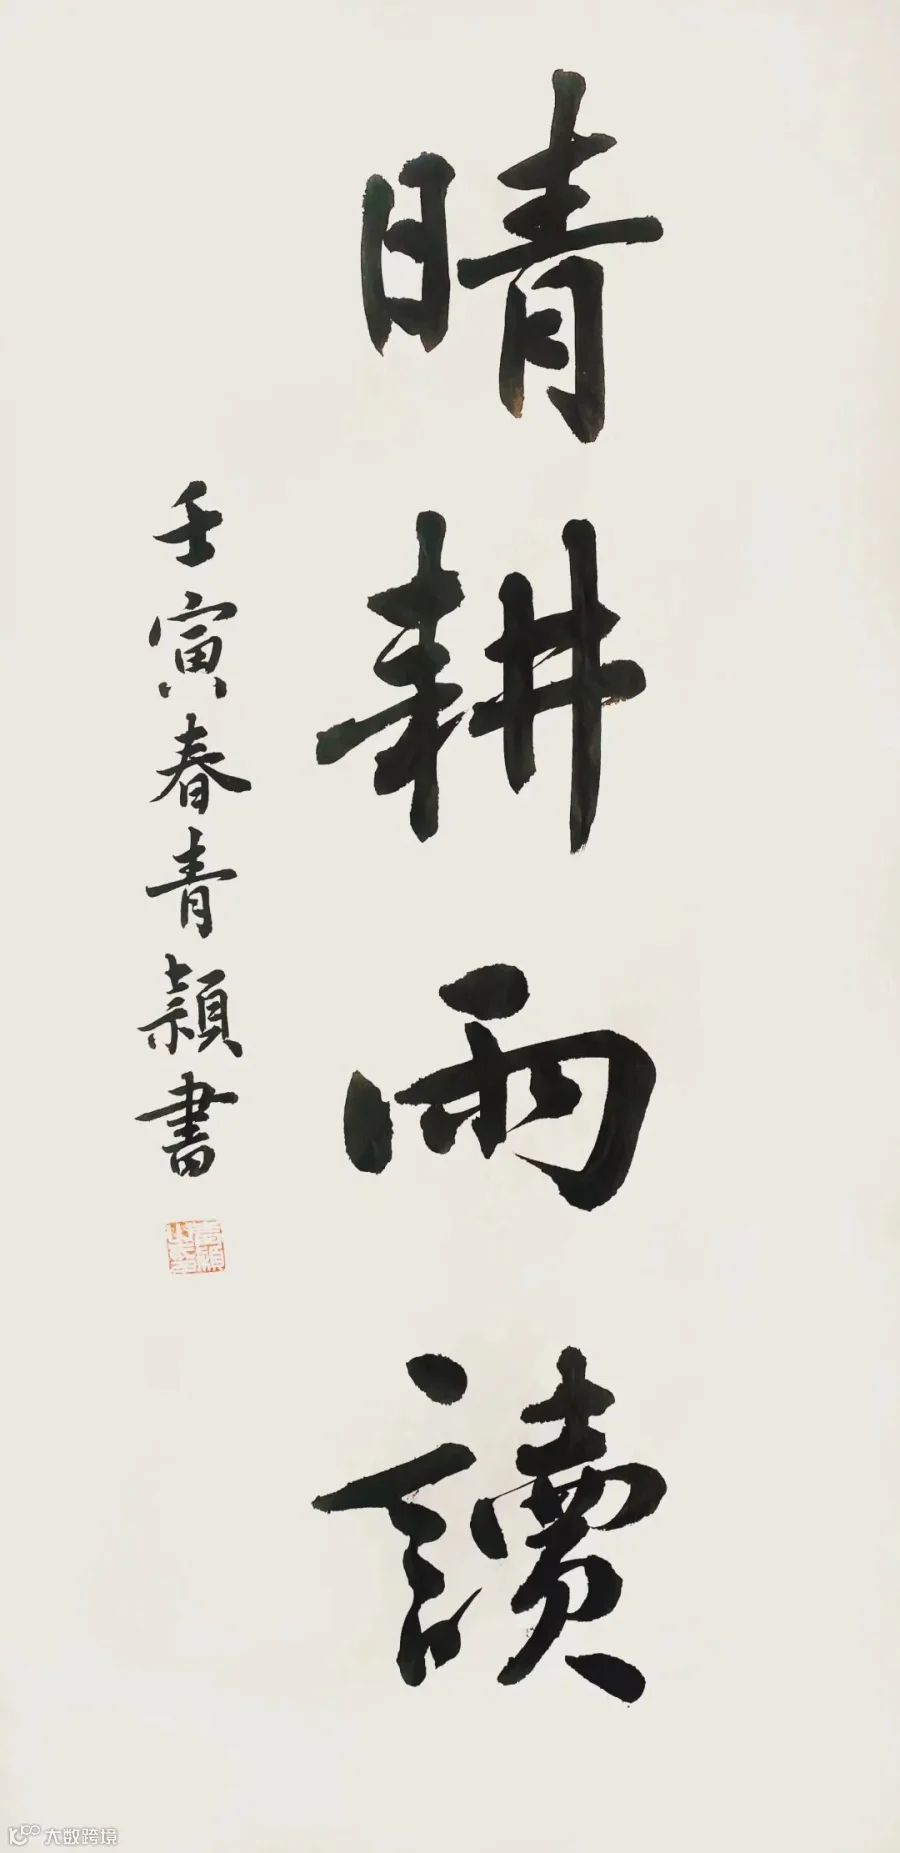 晴耕雨讀
壬寅春青穎書
大数跨境